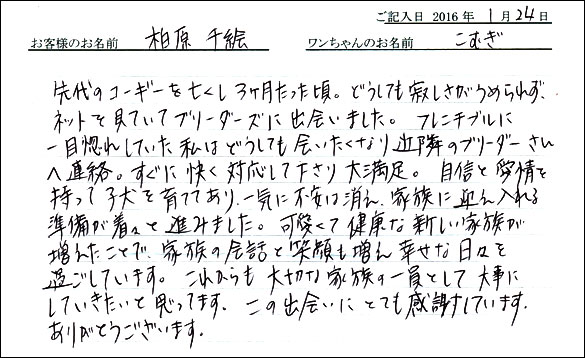 ご記入日 2016 年 1 月 24 日
お客様のお名前 柏原 千絵 ワンちゃんのお名前 こむぎ
先代のコーギーを亡くし3ヶ月たった頃。どうしても寂しさがうめられず、
ネットを見ていてブリーダーズに出会いました。フレンチブルに
一目惚れしていた私はどうしても会いたくなり近隣のブリーダーさん
へ連絡。すぐに快く対応して下さり大満足。自信と愛情を
持って子犬を育ててあり、一気に不安は消え、家族に迎え入れる
準備が着々と進みました。可愛くて健康な新しい家族が
増えたことで、家族の会話と笑顔も増え幸せな日々を
過ごしています。これからも大切な家族の一員として大事に
していきたいと思ってます。この出会いにとても感謝しています。
ありがとうございます。